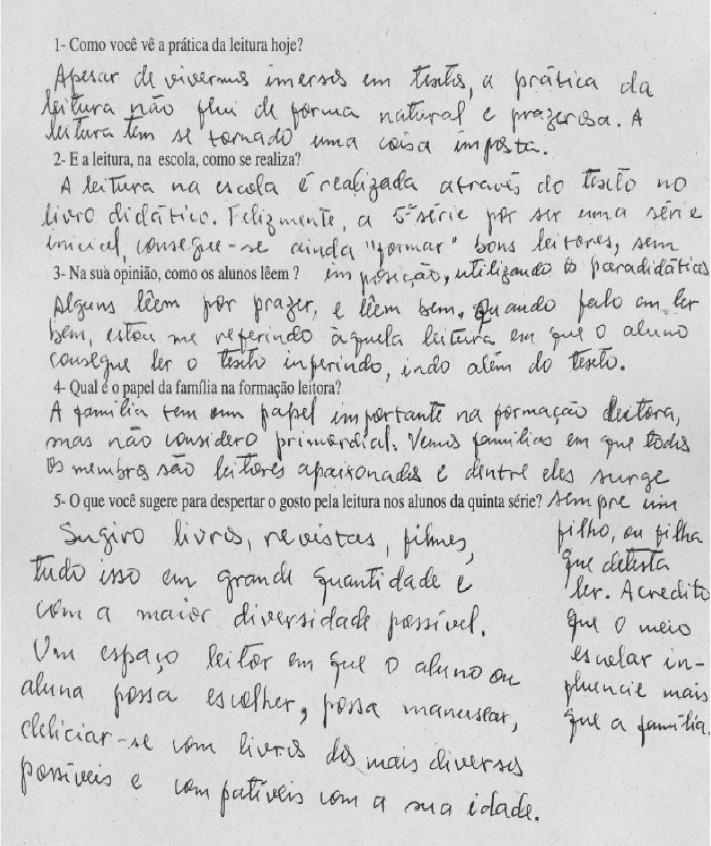 1- Como você vê a prática da leitura hoje?
Apesar de vivermos imersos em textos, a prática da
leitura não flui de forma natural e prazerosa. A
leitura tem se tornado uma coisa imposta.
2- E a leitura, na escola, como se realiza?
A leitura na escola é realizada através do texto no
livro didático. Felizmente, a 5ª série por ser uma série
inicial, consegue-se ainda "formar" bons leitores, sem
imposição, utilizando os paradidáticos
3- Na sua opinião, como os alunos lêem ?
Alguns lêem por prazer, e lêem bem. Quando falo em ler
bem, estou me referindo àquela leitura em que o aluno
consegue ler o texto inferindo, indo além do texto.
4- Qual é o papel da família na formação leitora?
A família tem um papel importante na formação leitora,
mas não considero primordial. Vemos famílias em que todos
os membros são leitores apaixonados e dentre eles surge
sempre um
filho, ou filha
que detesta
ler. Acredito
que o meio
escolar in-
fluencie mais
que a família.
5- O que você sugere para despertar o gosto pela leitura nos alunos da quinta série?
Sugiro livros, revistas, filmes,
tudo isso em grande quantidade e
com a maior diversidade possível.
Um espaço leitor em que o aluno ou
aluna possa escolher, possa manusear,
deliciar-se com livros dos mais diversos
possíveis e compatíveis com a sua idade.